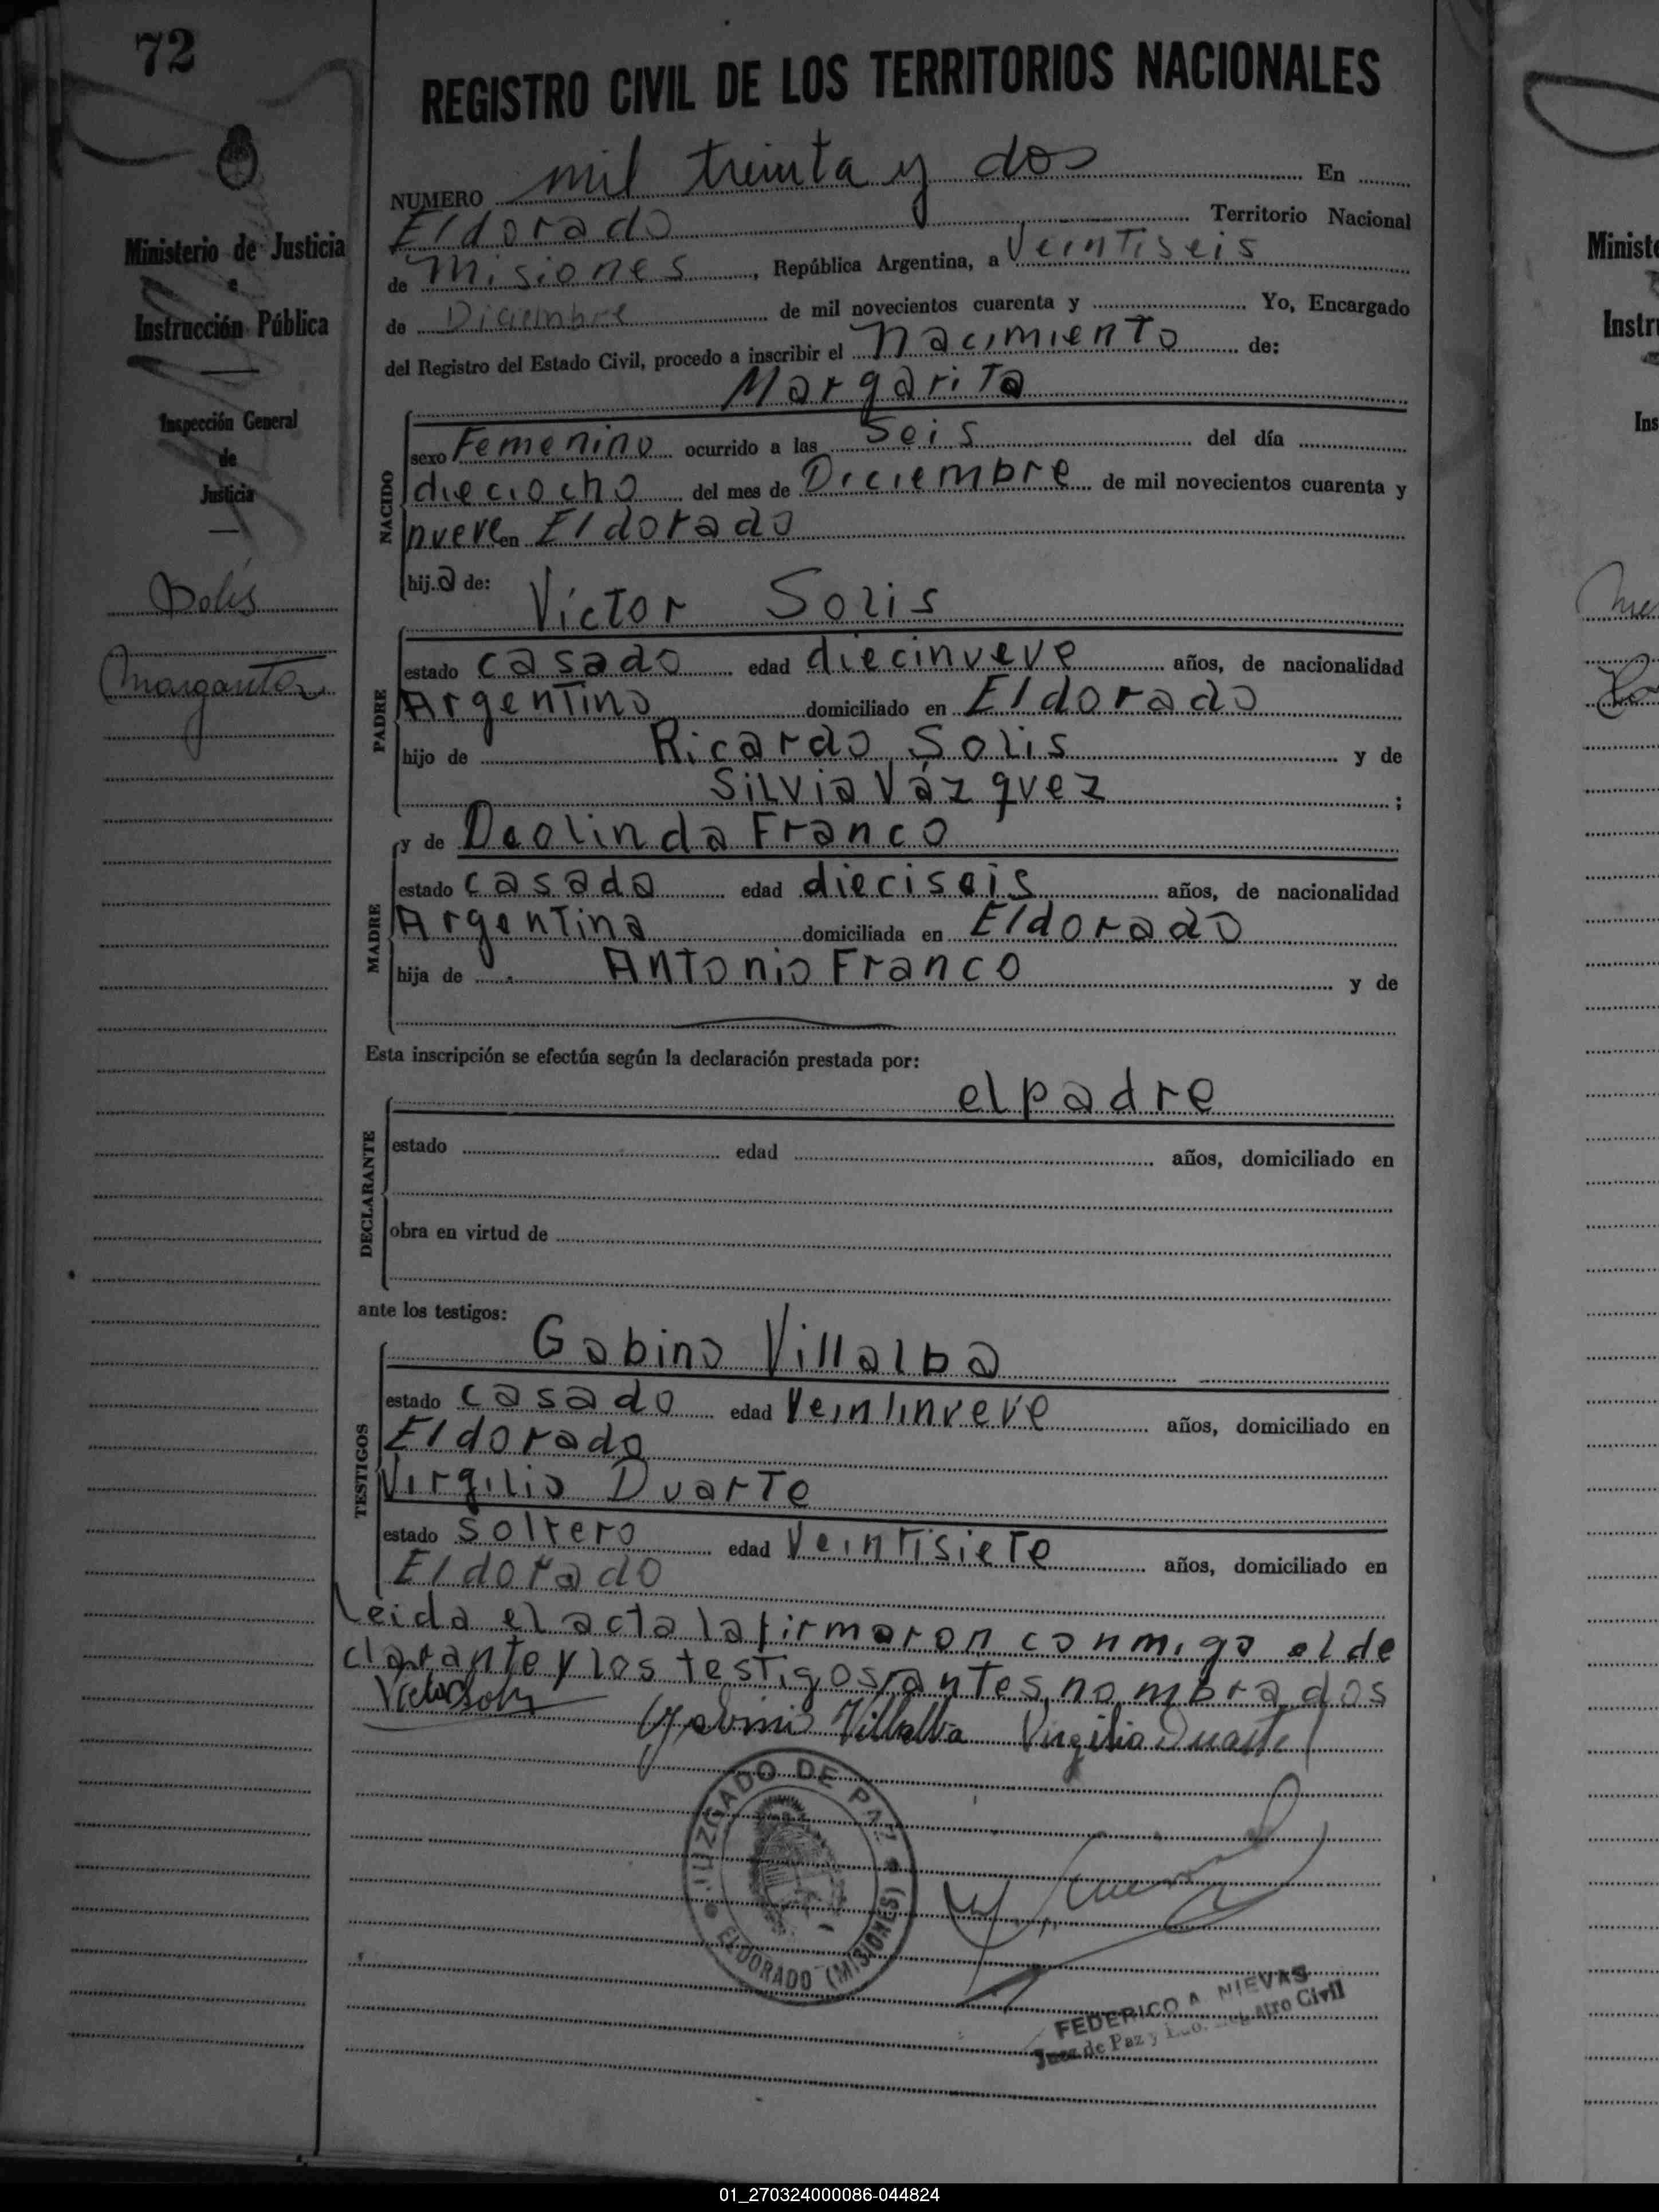 72
REGISTRO CIVIL DE LOS TERRITORIOS NACIONALES
NUMERO mil treinta y dos En
Eldorado Territorio Nacional
de Misiones, República Argentina, a Veintiseis
de Diciembre de mil novecientos cuarenta y Yo, Encargado
del Registro del Estado Civil, procedo a inscribir el nacimiento de:
Margarita
sexo Femenino ocurrido a las Seis del día
dieciocho del mes de Diciembre de mil novecientos cuarenta y
nueve en Eldorado
hija de:
NACIDO
Víctor Solis
estado casado edad diecinueve años, de nacionalidad
Argentino domiciliado en Eldorado
hijo de Ricardo Solis y de
Silvia Vázquez;
PADRE
y de Deolinda Franco
estado casada edad dieciseis años, de nacionalidad
Argentina domiciliada en Eldorado
hija de Antonio Franco y de
MADRE
Esta inscripción se efectúa según la declaración prestada por:
el padre
estado edad años, domiciliado en
obra en virtud de
DECLARANTE
ante los testigos:
Gabino Villalba
estado casado edad Veintinueve años, domiciliado en
Eldorado
Virgilio Duarte
estado soltero edad Veintisiete años, domiciliado en
Eldorado
TESTIGOS
Leida el acta la firmaron conmigo el de
clarante y los testigos antes nombrados
Victor Solis
Gabino Villalba Virgilio Duarte
JUZGADO DE PAZ
ELDORADO (MISIONES)
FEDERICO A. NIEVAS
Juez de Paz y Registro Civil
Ministerio de Justicia
e
Instrucción Pública
Inspección General
de
Justicia
Solís
Margarita
Minist
Instr
Ins
01_270324000086-044824